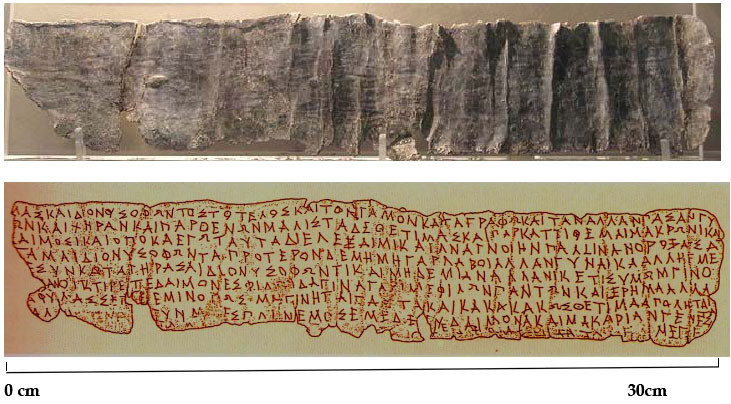 ΜΑΣΚΑΙΔΙΟΝΥΣΟΦΩΝΤΟΣΤΟΤΕΛΟΣΚΑΙΤΟΝΓΑΜΟΝΚΑΤΑΓΡΑΦΩΚΑΙΤΑΝΑΛΛΑΝΠΑΣΑΝΓΥ
ΩΝΚΑΙΧΗΡΑΝΚΑΙΠΑΡΘΕΝΩΝΜΑΛΙΣΤΑΔΕΘΕΤΙΜΑΣΚΑΙΠΑΡΚΑΤΤΙΘΕΜΑΙΜΑΚΡΩΝΙΚΑΙ
ΔΑΙΜΟΣΙΚΑΙΟΠΟΚΑΕΓΩΤΑΥΤΑΔΙΕΛΕΞΑΙΜΙΚΑΙΑΝΑΓΝΟΙΗΝΠΑΛΙΝΑΝΟΡΟΞΑΣΑ
ΓΑΜΑΙΔΙΟΝΥΣΟΦΩΝΤΑΠΡΟΤΕΡΟΝΔΕΜΗΜΗΓΑΡΛΑΒΟΙΑΛΛΑΝΓΥΝΑΙΚΑΑΛΛΗΕΜΕ
ΕΣΥΝΚΑΤΑΓΗΡΑΣΑΙΔΙΟΝΥΣΟΦΩΝΤΙΚΑΙΜΗΔΕΜΙΑΝΑΛΛΑΝΙΚΕΤΙΣΥΜΩΜΓΙΝΟ
ΑΝΟΙΚΤΙΡΕΤΕΔΑΙΜΟΝΕΣΦΙΛΟΙΔΑΓΙΝΑΓΑΡΙΜΕΦΙΛΩΝΠΑΝΤΩΝΚΑΙΕΡΗΜΑΑΛΛΑ
ΦΥΛΑΣΣΕΤΕΕΜΙΝΟΠΩΣΜΗΓΙΝΗΤΑΙΤΑΥΤΑΚΑΙΚΑΚΑΚΑΚΩΣΘΕΤΙΜΑΑΠΟΛΗΤΑΙ
ΕΣΠΛΗΝΕΜΟΣΕΜΕΔΕΥΔΑΙΜΟΝΑΚΑΙΜΑΚΑΡΙΑΝΓΕΝΕΣΤΑΙ
0 cm 30cm